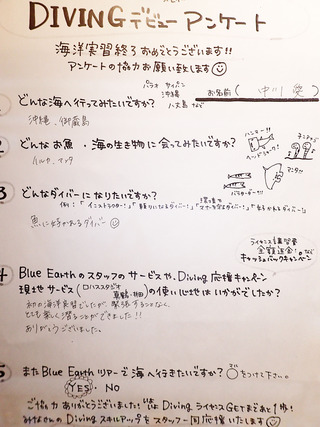 DIVINGデビューアンケート
海洋実習終了おめでとうございます!!
アンケートの協力お願い致します
お名前( 中川 愛 )
パラオ サイパン
沖縄
八丈島 など
どんな海へ行ってみたいですか?
沖縄、御蔵島
どんなお魚・海の生き物に会ってみたいですか?
ハンマー!!
イルカ、マンタ
マンタ!!
バラクーダ!!
3 どんなダイバーになりたいですか?
例:「インストラクター!」「頼りになるダイバー!」
魚に好かれるダイバー
ライセンス講習費
全額返金!
キャッシュバックキャンペーン
4 Blue Earthのスタッフのサービスや、Diving応援キャンペーン
現地サービス(ロハススタジオ
)の使い心地はいかがでしたか?
初の海洋実習でしたが、緊張することなく、
とても楽しく潜ることができました!!
ありがとうございました。
5 またBlue Earthツアーで海へ行きたいですか?○をつけて下さい。
YES・NO
ご協力ありがとうございました!いよいよDivingライセンスGETまであと1歩!
みなさんのDivingスキルアップをスタッフ一同応援しています